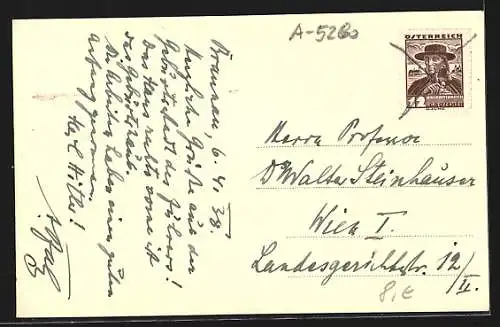 A-5260
ÖSTERREICH
Braunau, 6. VI. 38.
Herzliche Grüße aus der
Geburtsstadt des Führers!
Das Haus rechts vorne ist
das Geburtshaus.
Die Arbeiten haben einen guten
genommen.
Heil Hitler!
Herrn Professor
Dr Walter Steinhauser
Wien I.
Landesgerichtsstr. 12/
II.
8,€